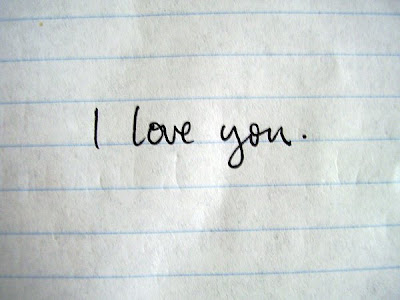 I love you.